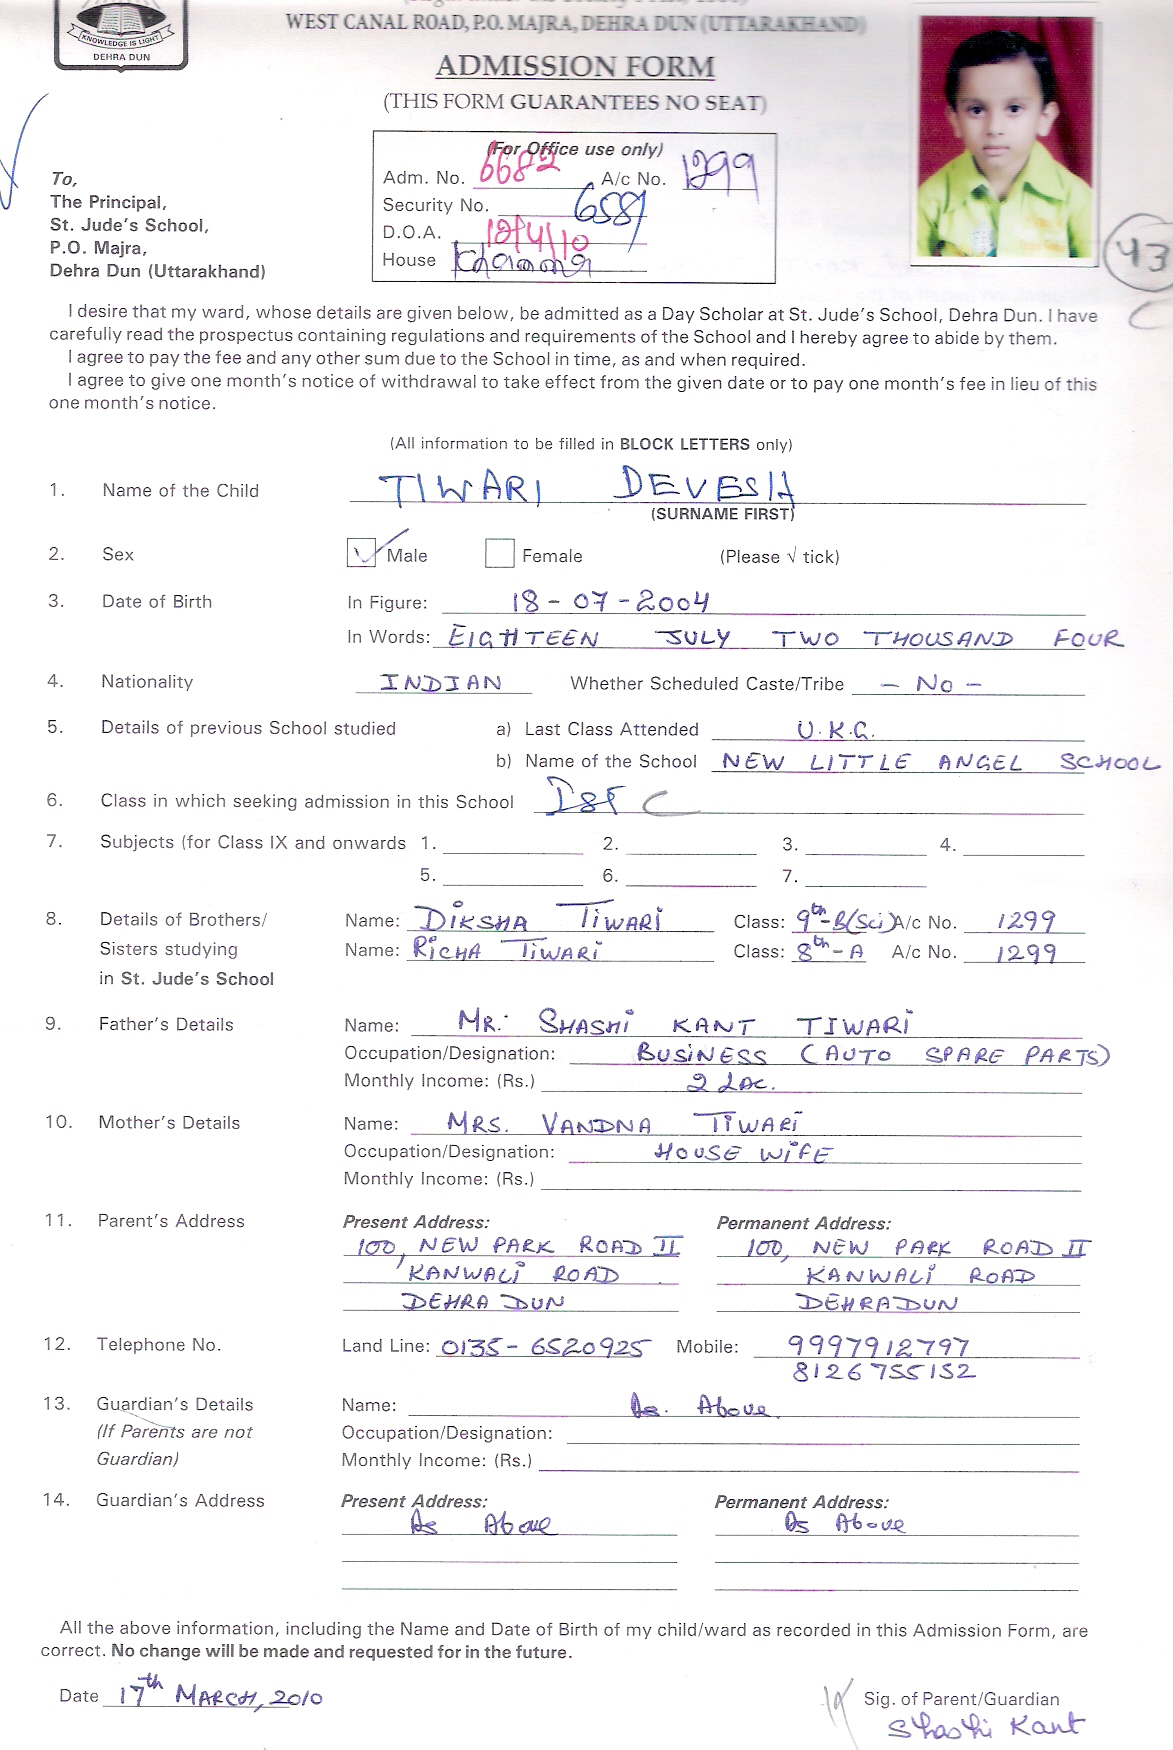 KNOWLEDGE IS LIGHT
DEHRA DUN
WEST CANAL ROAD, P.O. MAJRA, DEHRA DUN (UTTARAKHAND)
ADMISSION FORM
(THIS FORM GUARANTEES NO SEAT)
(For Office use only)
Adm. No. 6682 A/c No. 1299
Security No. 6581
D.O.A. 12/4/10
House
43
To,
The Principal,
St. Jude's School,
P.O. Majra,
Dehra Dun (Uttarakhand)
I desire that my ward, whose details are given below, be admitted as a Day Scholar at St. Jude's School, Dehra Dun. I have
carefully read the prospectus containing regulations and requirements of the School and I hereby agree to abide by them.
I agree to pay the fee and any other sum due to the School in time, as and when required.
I agree to give one month's notice of withdrawal to take effect from the given date or to pay one month's fee in lieu of this
one month's notice.
(All information to be filled in BLOCK LETTERS only)
1. Name of the Child TIWARI DEVESH
(SURNAME FIRST)
2. Sex Male Female (Please √ tick)
3. Date of Birth In Figure: 18-07-2004
In Words: EIGHTEEN JULY TWO THOUSAND FOUR
4. Nationality INDIAN Whether Scheduled Caste/Tribe - No -
5. Details of previous School studied a) Last Class Attended U.K.G.
b) Name of the School NEW LITTLE ANGEL SCHOOL
6. Class in which seeking admission in this School Ist C
7. Subjects (for Class IX and onwards 1. 2. 3. 4.
5. 6. 7.
8. Details of Brothers/ Name: DIKSHA TIWARI Class: 9th-B(Sci) A/c No. 1299
Sisters studying Name: RICHA TIWARI Class: 8th-A A/c No. 1299
in St. Jude's School
9. Father's Details Name: MR. SHASHI KANT TIWARI
Occupation/Designation: BUSINESS (AUTO SPARE PARTS)
Monthly Income: (Rs.) 2 LAC.
10. Mother's Details Name: MRS. VANDNA TIWARI
Occupation/Designation: HOUSE WIFE
Monthly Income: (Rs.)
11. Parent's Address Present Address: Permanent Address:
100, NEW PARK ROAD II 100, NEW PARK ROAD II
KANWALI ROAD KANWALI ROAD
DEHRA DUN DEHRADUN
12. Telephone No. Land Line: 0135-6520925 Mobile: 9997912797
8126755152
13. Guardian's Details Name: As Above
(If Parents are not Occupation/Designation:
Guardian) Monthly Income: (Rs.)
14. Guardian's Address Present Address: Permanent Address:
As Above As Above
All the above information, including the Name and Date of Birth of my child/ward as recorded in this Admission Form, are
correct. No change will be made and requested for in the future.
Date 17th MARCH, 2010 Sig. of Parent/Guardian
Shashi Kant